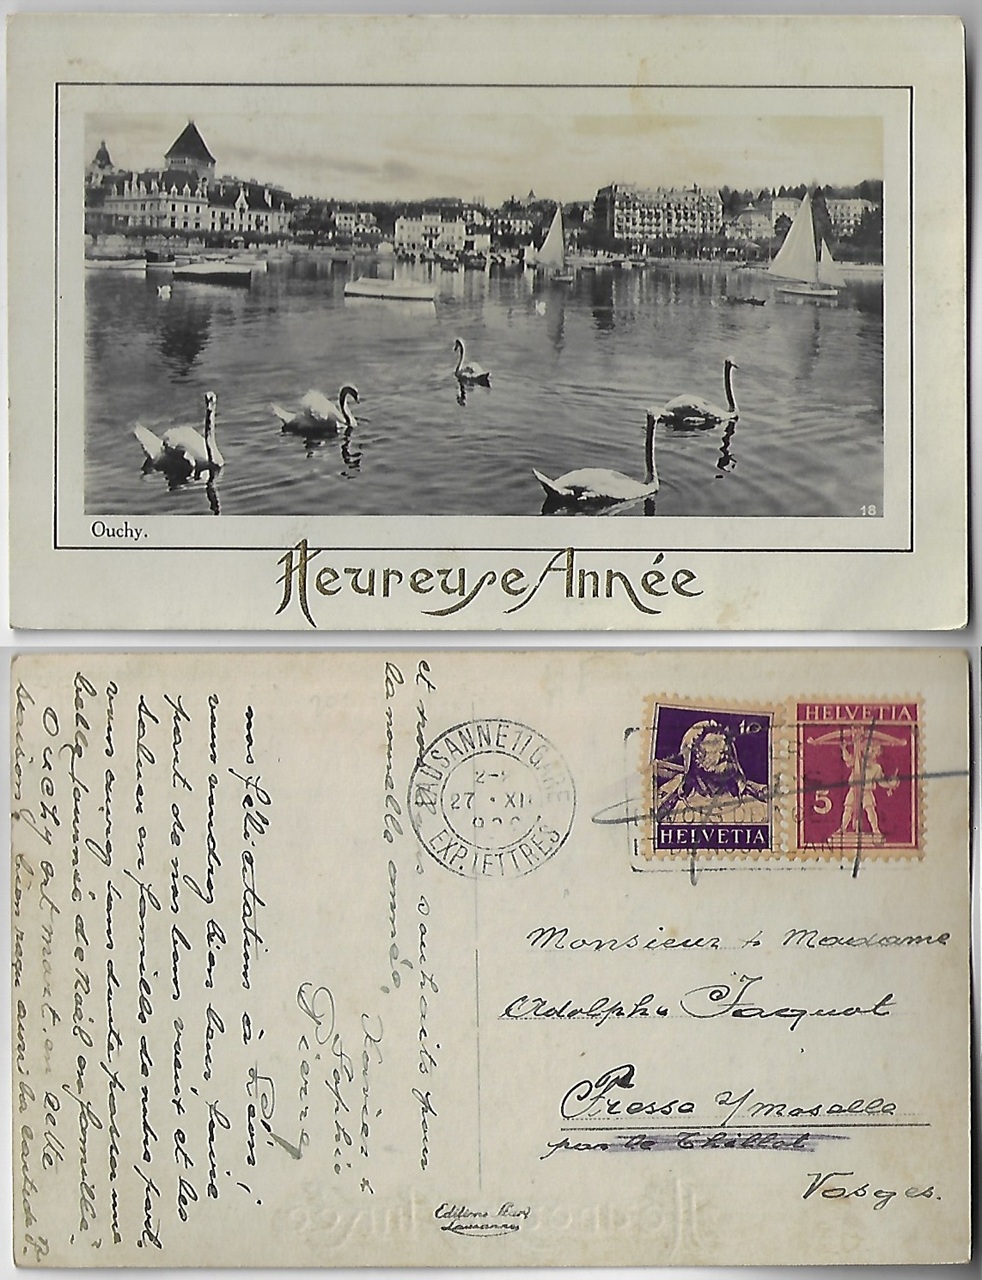 18
Ouchy.
Heureuse Année
et nos souhaits pour
la nouvelle année,
Xavier &
Sophie
Pierre
nos félicitations à Léon;
vous voudrez bien leur faire
part de nos bons vœux et les
saluer en famille de notre part.
vous aurez sans doute passer une
belle journée de Noël en famille?
Ouchy est mort en cette
saison, bien reçu aussi la carte de
LAUSANNE 1 GARE
27 XII
EXP. LETTRES
10
HELVETIA
HELVETIA
5
Monsieur & Madame
Adolphe Jacquot
Fresse s/ Moselle
par le Thillot
Vosges.
Editions
Lausanne